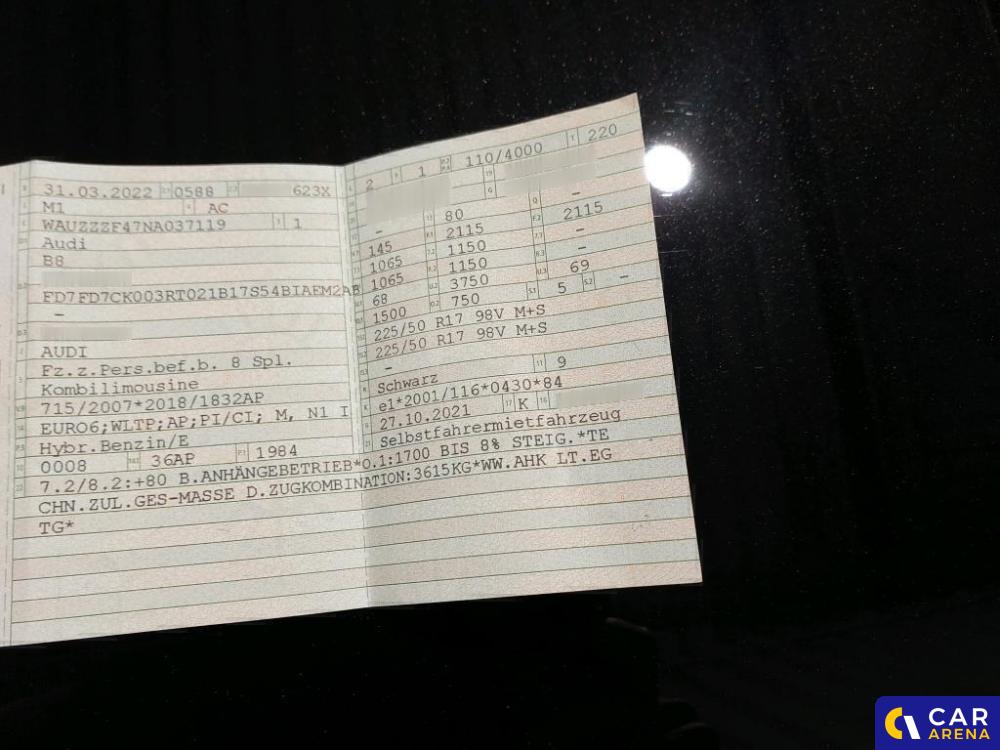 31.03.2022 0588 623X
M1 AC
WAUZZZF47NA037119 1
Audi
B8
FD7FD7CK003RT021B17S54BIAEM2AB
–
AUDI
Fz.z.Pers.bef.b. 8 Spl.
Kombilimousine
715/2007*2018/1832AP
EURO6;WLTP;AP;PI/CI; M, N1 I
Hybr.Benzin/E
0008 36AP 1984
7.2/8.2:+80 B.ANHÄNGEBETRIEB*O.1:1700 BIS 8% STEIG.*TE
CHN.ZUL.GES-MASSE D.ZUGKOMBINATION:3615KG*WW.AHK LT.EG
TG*
2 1 110/4000 220
– 80 –
145 2115 2115
1065 1150 –
1065 1150 –
68 3750 69
1500 750 5 –
225/50 R17 98V M+S
225/50 R17 98V M+S
–
Schwarz 9
e1*2001/116*0430*84
27.10.2021 K
Selbstfahrermietfahrzeug
CAR
ARENA